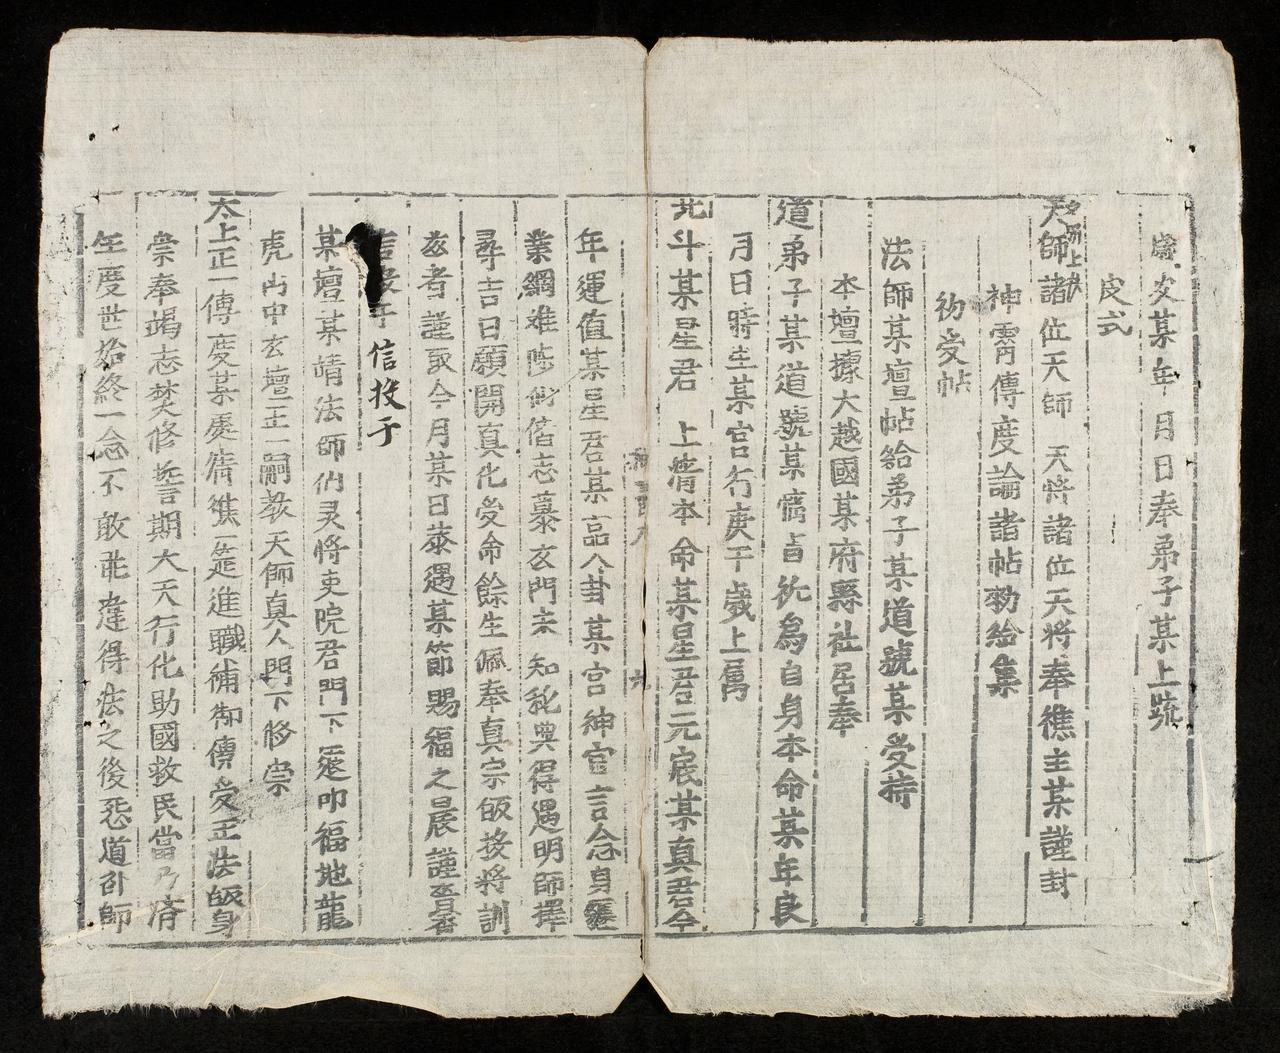 歲次某年月日奉弟子某上疏
皮式
天師諸位天師　天將諸位天將奉樵主某謹封
神霄傳度論諸帖勑給集
初受帖
法師某壇帖給弟子某道號某受持
本壇據大越國某府縣社居奉
道弟子某道號某 为自身本命某年良
月日時生某宮行庚干歲上屬
北斗某星君　上清本命某星君元宸某真君今
年運值某星君某品八卦某宮紳官言念身纏
業網难 忘慕玄門未知秘典得遇明師擇
尋吉日願開真化受命餘生佩奉真宗皈投將訓
玆者謹取今月某日恭遇某節賜福之晨謹賫香
信 信投于
某壇某靖法師們灵將吏院君門下 叩福地龍
虎山中玄壇正一嗣教天師真人門下修崇
太上正一傳度某處 樵一筵進職補 傳受正法皈身
崇奉竭志焚修誓期大天行化助國救民當乃濟
生度世始終一念不敢乖違得法之後 道 師